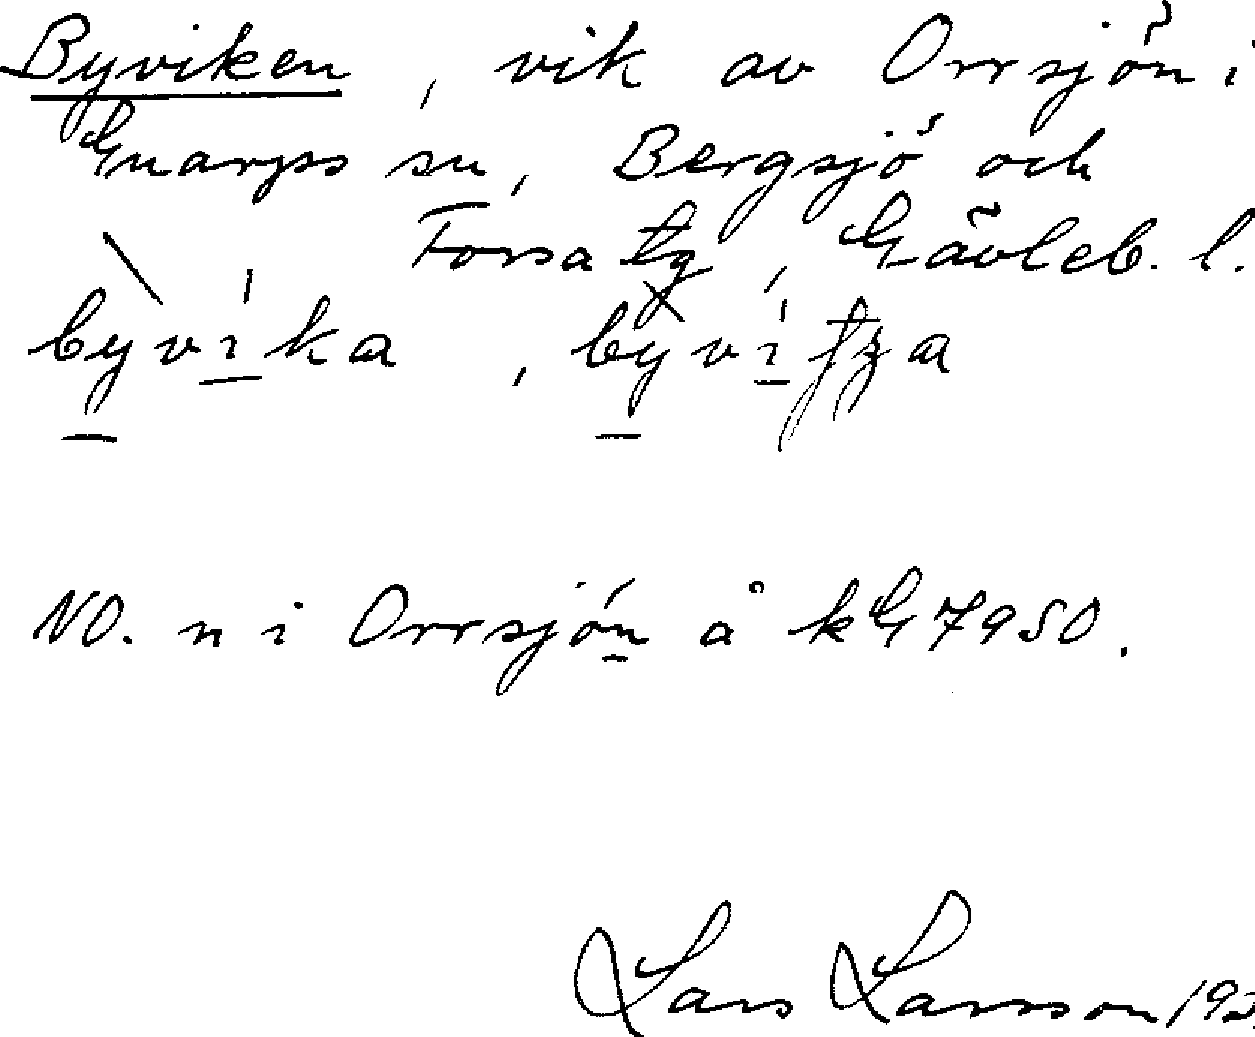 Byviken, vik av Orrsjön i
Gnarps sn, Bergsjö och
Forsa tg, Gävleb. l.
byvika, byvitza
NO. n i Orrsjön å kG7950.
Lars Larsson 192